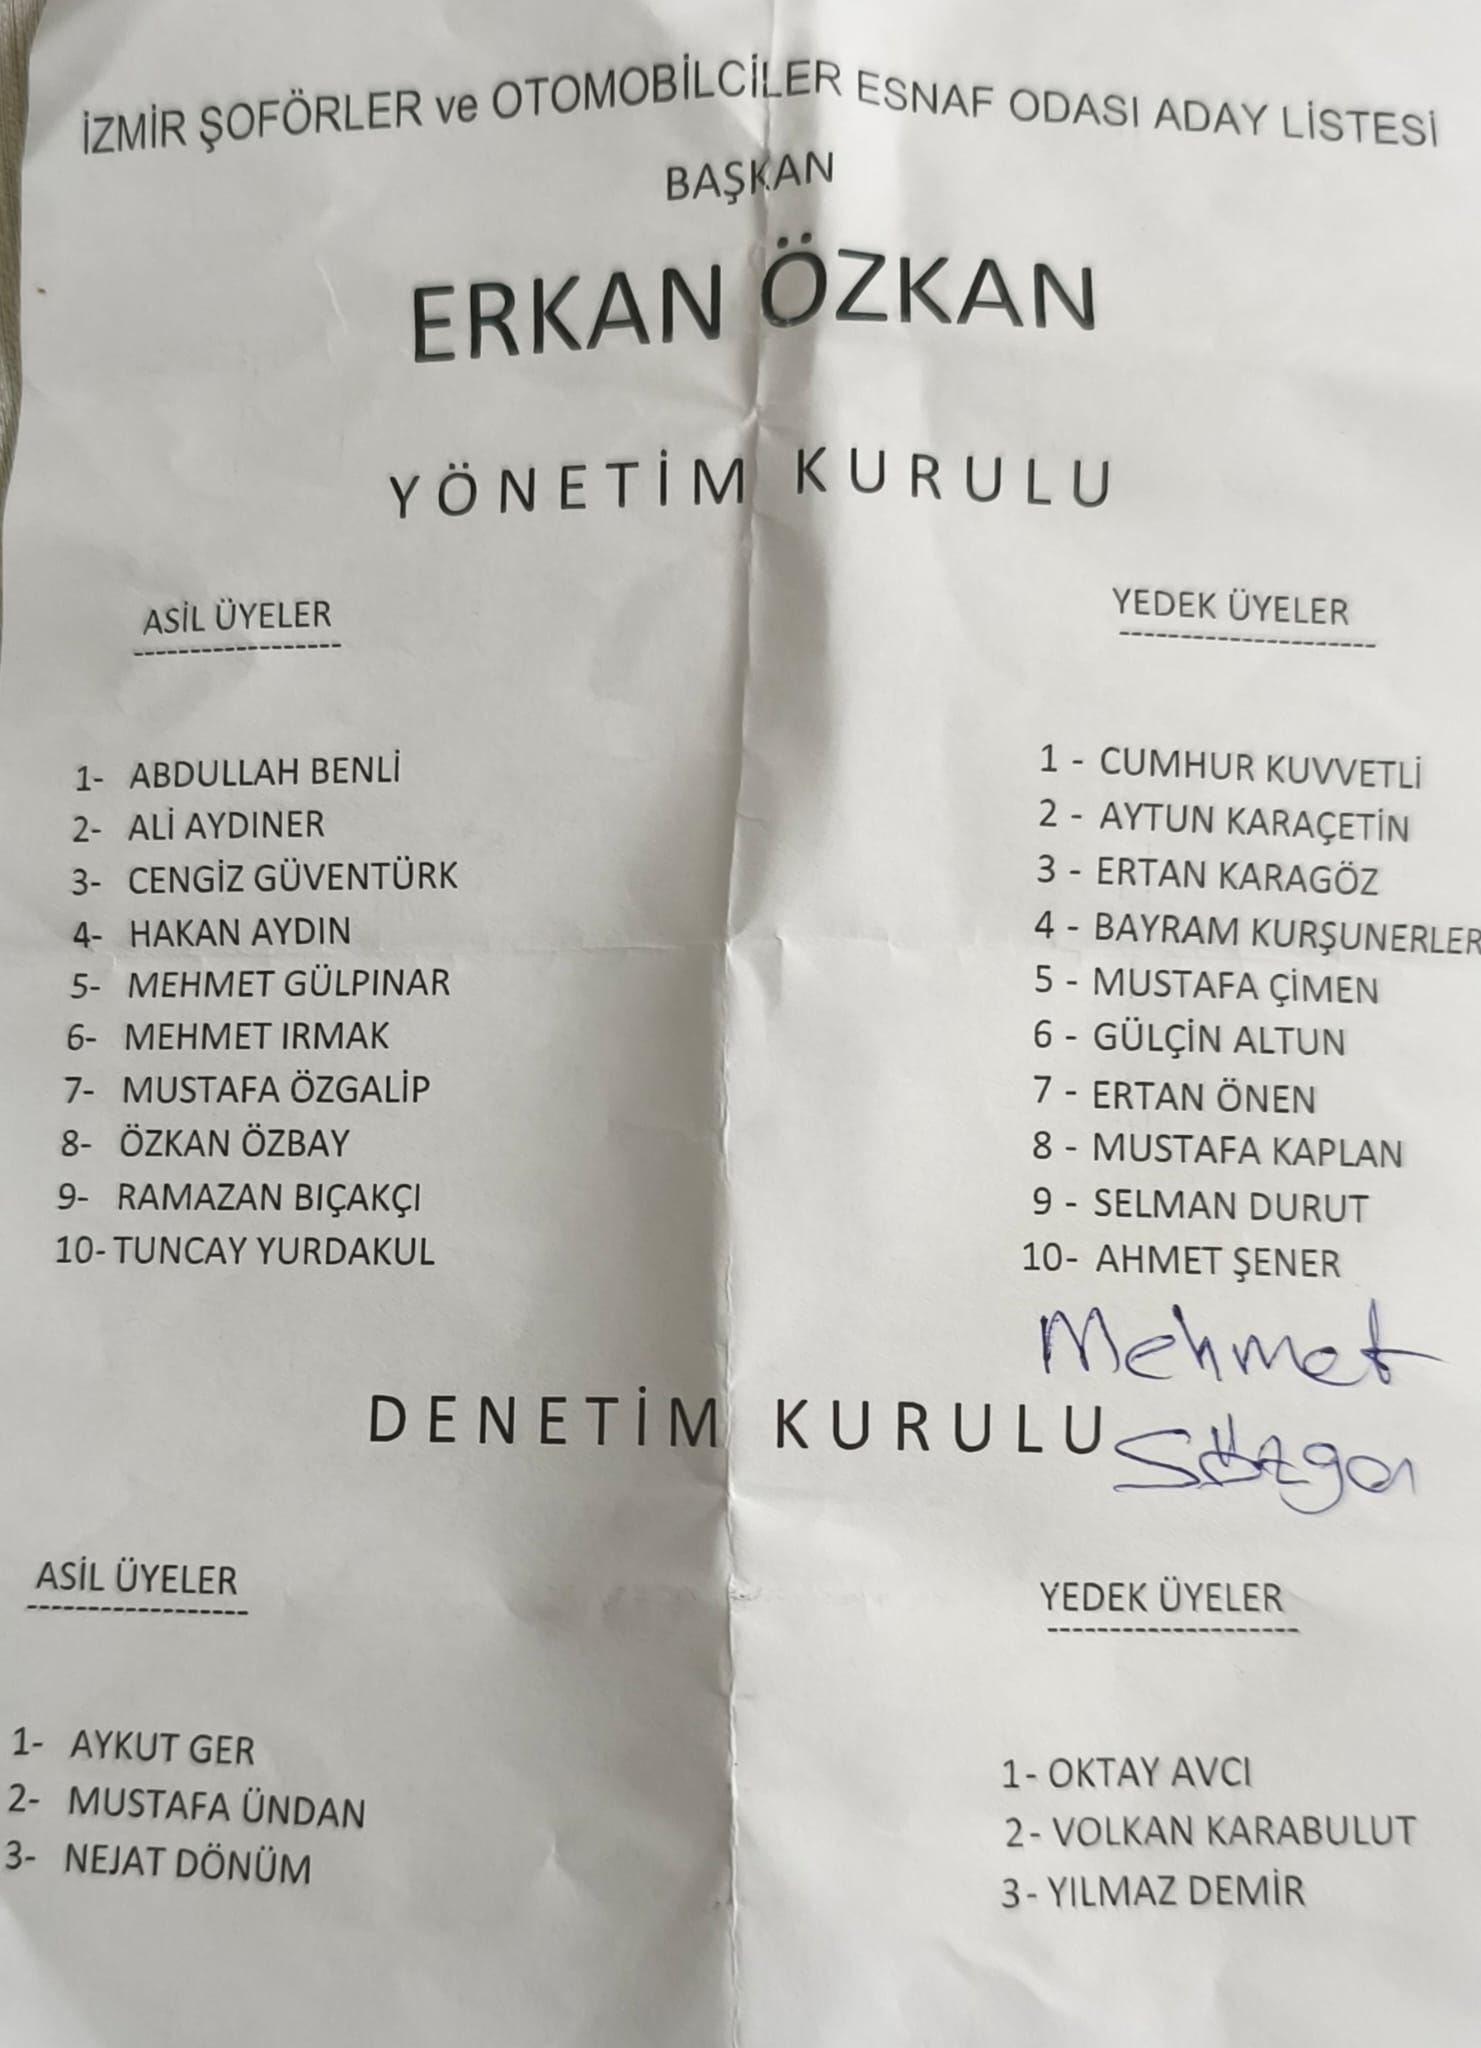 İZMİR ŞOFÖRLER ve OTOMOBİLCİLER ESNAF ODASI ADAY LİSTESİ
BAŞKAN
ERKAN ÖZKAN
YÖNETİM KURULU
ASİL ÜYELER
1- ABDULLAH BENLİ
2- ALİ AYDINER
3- CENGİZ GÜVENTÜRK
4- HAKAN AYDIN
5- MEHMET GÜLPINAR
6- MEHMET IRMAK
7- MUSTAFA ÖZGALİP
8- ÖZKAN ÖZBAY
9- RAMAZAN BIÇAKÇI
10- TUNCAY YURDAKUL
YEDEK ÜYELER
1 - CUMHUR KUVVETLİ
2 - AYTUN KARAÇETİN
3 - ERTAN KARAGÖZ
4 - BAYRAM KURŞUNERLER
5 - MUSTAFA ÇİMEN
6 - GÜLÇİN ALTUN
7 - ERTAN ÖNEN
8 - MUSTAFA KAPLAN
9 - SELMAN DURUT
10- AHMET ŞENER
Mehmet
DENETİM KURULU
ASİL ÜYELER
1- AYKUT GER
2- MUSTAFA ÜNDAN
3- NEJAT DÖNÜM
YEDEK ÜYELER
1- OKTAY AVCI
2- VOLKAN KARABULUT
3- YILMAZ DEMİR